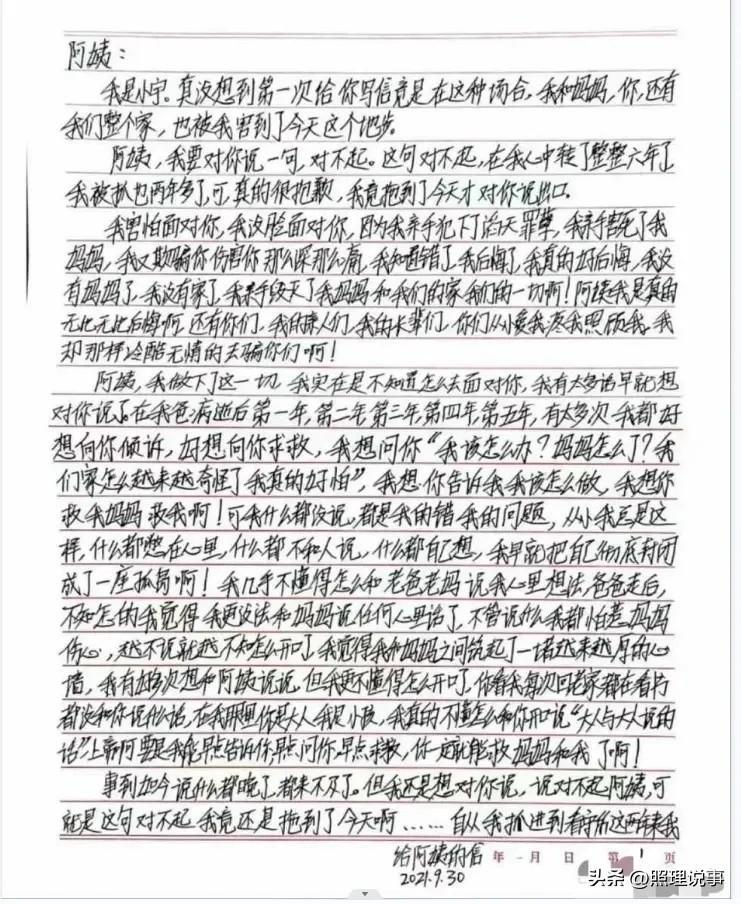 阿姨：
我是小宇。真没想到第一次给你写信竟是在这种场合，我和妈妈，你，还有
我们整个家，也被我害到了今天这个地步。
阿姨，我要对你说一句，对不起。这句对不起，在我心中转了整整六年了
我被抓也两年多了，可，真的很抱歉，我竟拖到了今天才对你说出口。
我害怕面对你，我没脸面对你，因为我亲手犯下了滔天罪孽，我亲手害死了我
妈妈，我又欺骗你伤害你那么深那么痛，我知道错了，我后悔了，我真的好后悔，我没
有妈妈了，我没有家了，我亲手毁灭了我妈妈和我们的家我们的一切啊！阿姨我是真的
无比无比后悔啊，还有你们，我的亲人们，我的长辈们，你们从小爱我疼我照顾我。我
却那样冷酷无情的去骗你们啊！
阿姨，我做下了这一切，我实在是不知道怎么去面对你，我有太多话早就想
对你说了。在我爸病逝后第一年，第二年第三年，第四年，第五年，有太多次我都好
想向你倾诉，好想向你求救，我想问你“我该怎么办？妈妈怎么了？我
们家怎么越来越奇怪了我真的好怕”，我想你告诉我我该怎么做，我想你
救我妈妈救我啊！可我什么都没说，都是我的错我的问题，从小我总是这
样，什么都憋在心里，什么都不和人说，什么都自己想，我早就把自己彻底封闭
成了一座孤岛啊！我几乎不懂得怎么和老爸老妈说我心里想法，爸爸走后，
不知怎的我觉得我更没法和妈妈说任何心里话了，不管说什么我都怕惹妈妈
伤心，越不说就越不知怎么开口了，我觉得我和妈妈之间筑起了一堵越来越厚的心
墙，我有好多次想和阿姨说说，但我更不懂得怎么开口了，你看我每次回老家都在看书
都没和你说什么话，在我眼里你是大人我是小孩，我真的不懂怎么和你开口说“大人与大人说的
话”上帝啊要是我能早点告诉你，早点问你，早点求救，你一定就能救妈妈和我了啊！
事到如今说什么都晚了，都来不及了。但我还是想对你说，说对不起阿姨，可
就是这句对不起，我竟还是拖到了今天啊……自从我抓进到看守所这两年来我
给阿姨的信 年 月 日 第 1 页
2021.9.30
头条 @照理说事